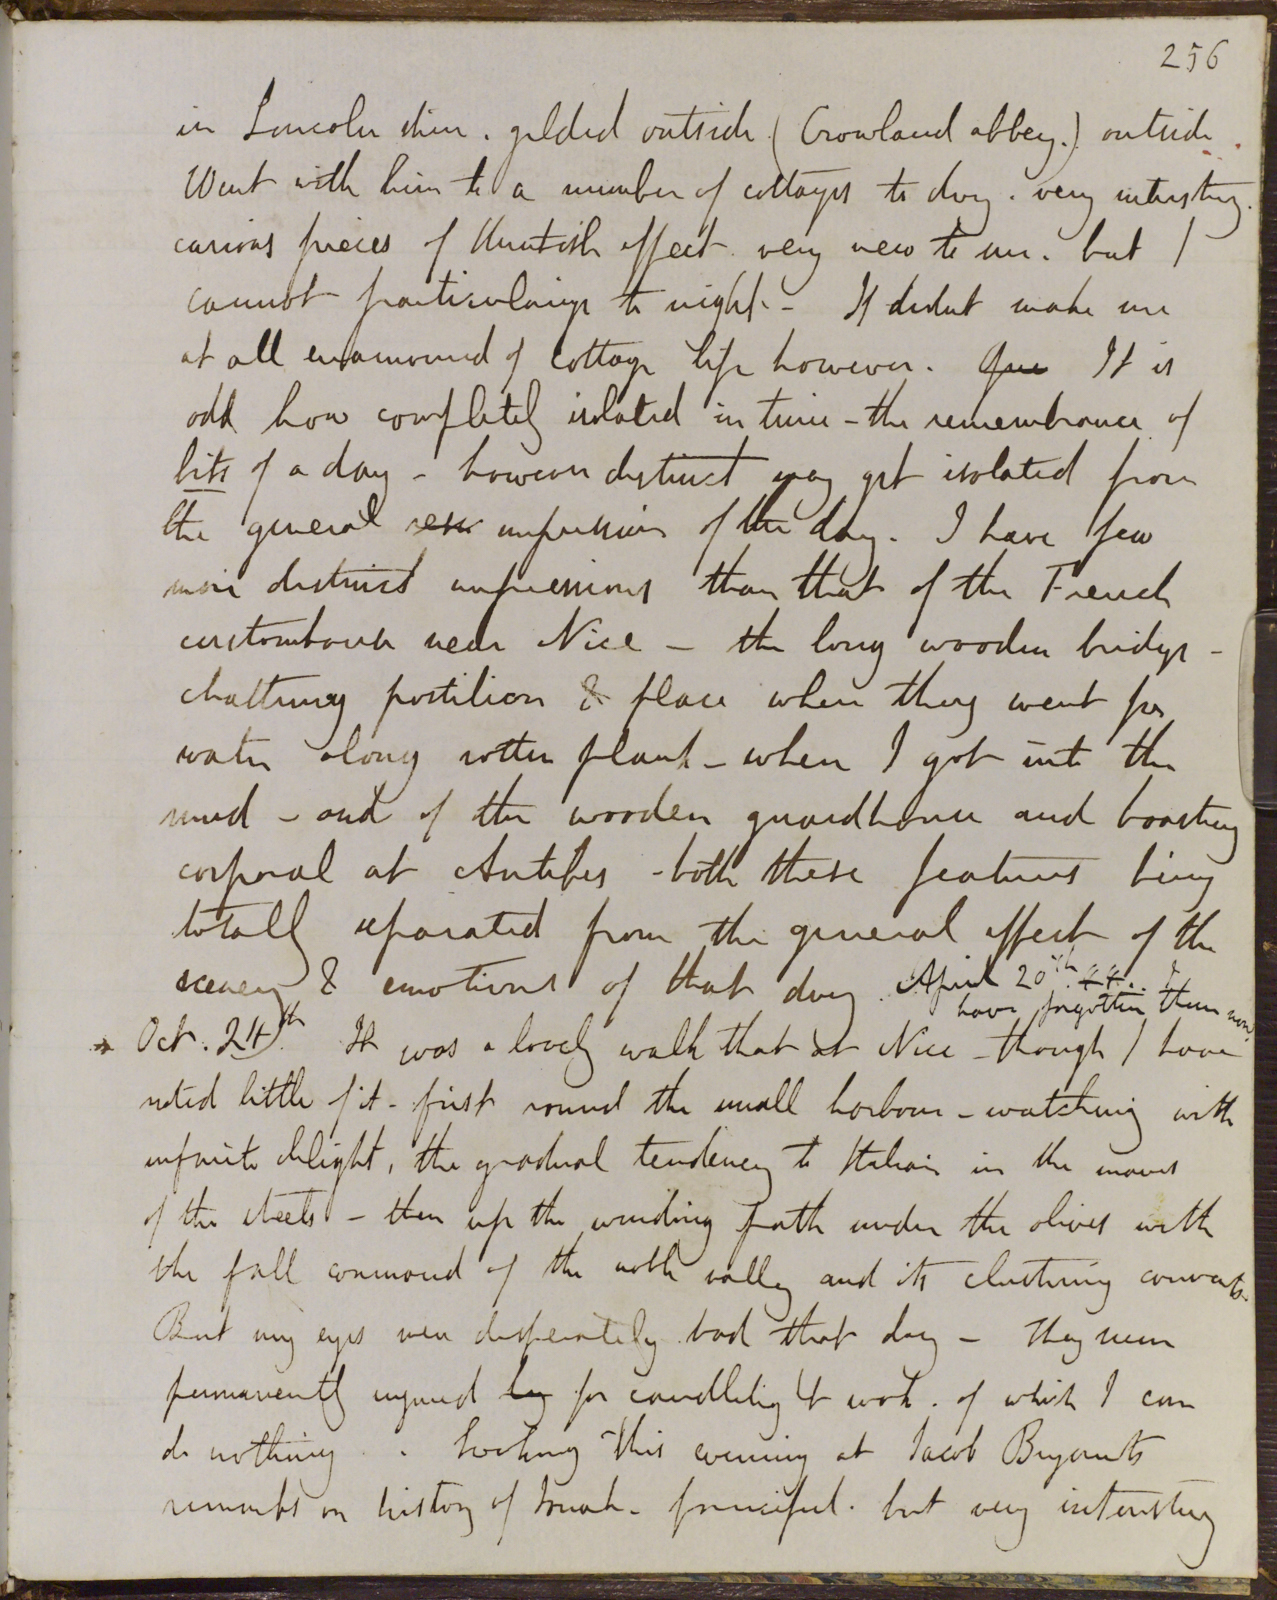 256
in Lincolnshire. gilded outside (Crowland abbey.) outside
Went with him to a number of cottages to day. very interesting.
curious pieces of Kentish effect. very new to me. but I
cannot particularize to night - It didnt make me
at all enamoured of cottage life however. It is
odd how completely isolated in time - the remembrance of
bits of a day - however distinct may get isolated from
the general impression of the day. I have few
more distinct impressions than that of the French
customhouse near Nice - the long wooden bridge -
chattering postilion & place where they went for
water along rotten plank - where I got into the
mud - and of the wooden guardhouse and boasting
corporal at Antibes - both these features being
totally separated from the general effect of the
scenery & emotions of that day. April 20th. I
have forgotten them now.
Oct. 24th It was a lovely walk that at Nice - though I have
noted little of it - first round the small harbour - watching with
infinite delight, the gradual tendency to Italian in the
of the streets - then up the winding path under the olives with
the full command of the noble valley and its clustering convents.
But my eyes were desperately bad that day - they seem
permanently injured for candlelight work. of which I can
do nothing. Looking this evening at Jacob Bryants
remarks on history of Jonah - fanciful. but very interesting